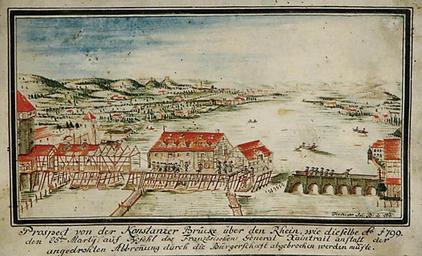 Prospect von der Konstanzer Brücke über den Rhein, wie dieselbe Aō 1799.
den 25ten Martij auf Befehl des Französischen General Xaintrail anstatt der
angedrohten Abbrenung durch die Bürgerschaft abgebrochen werden muste.